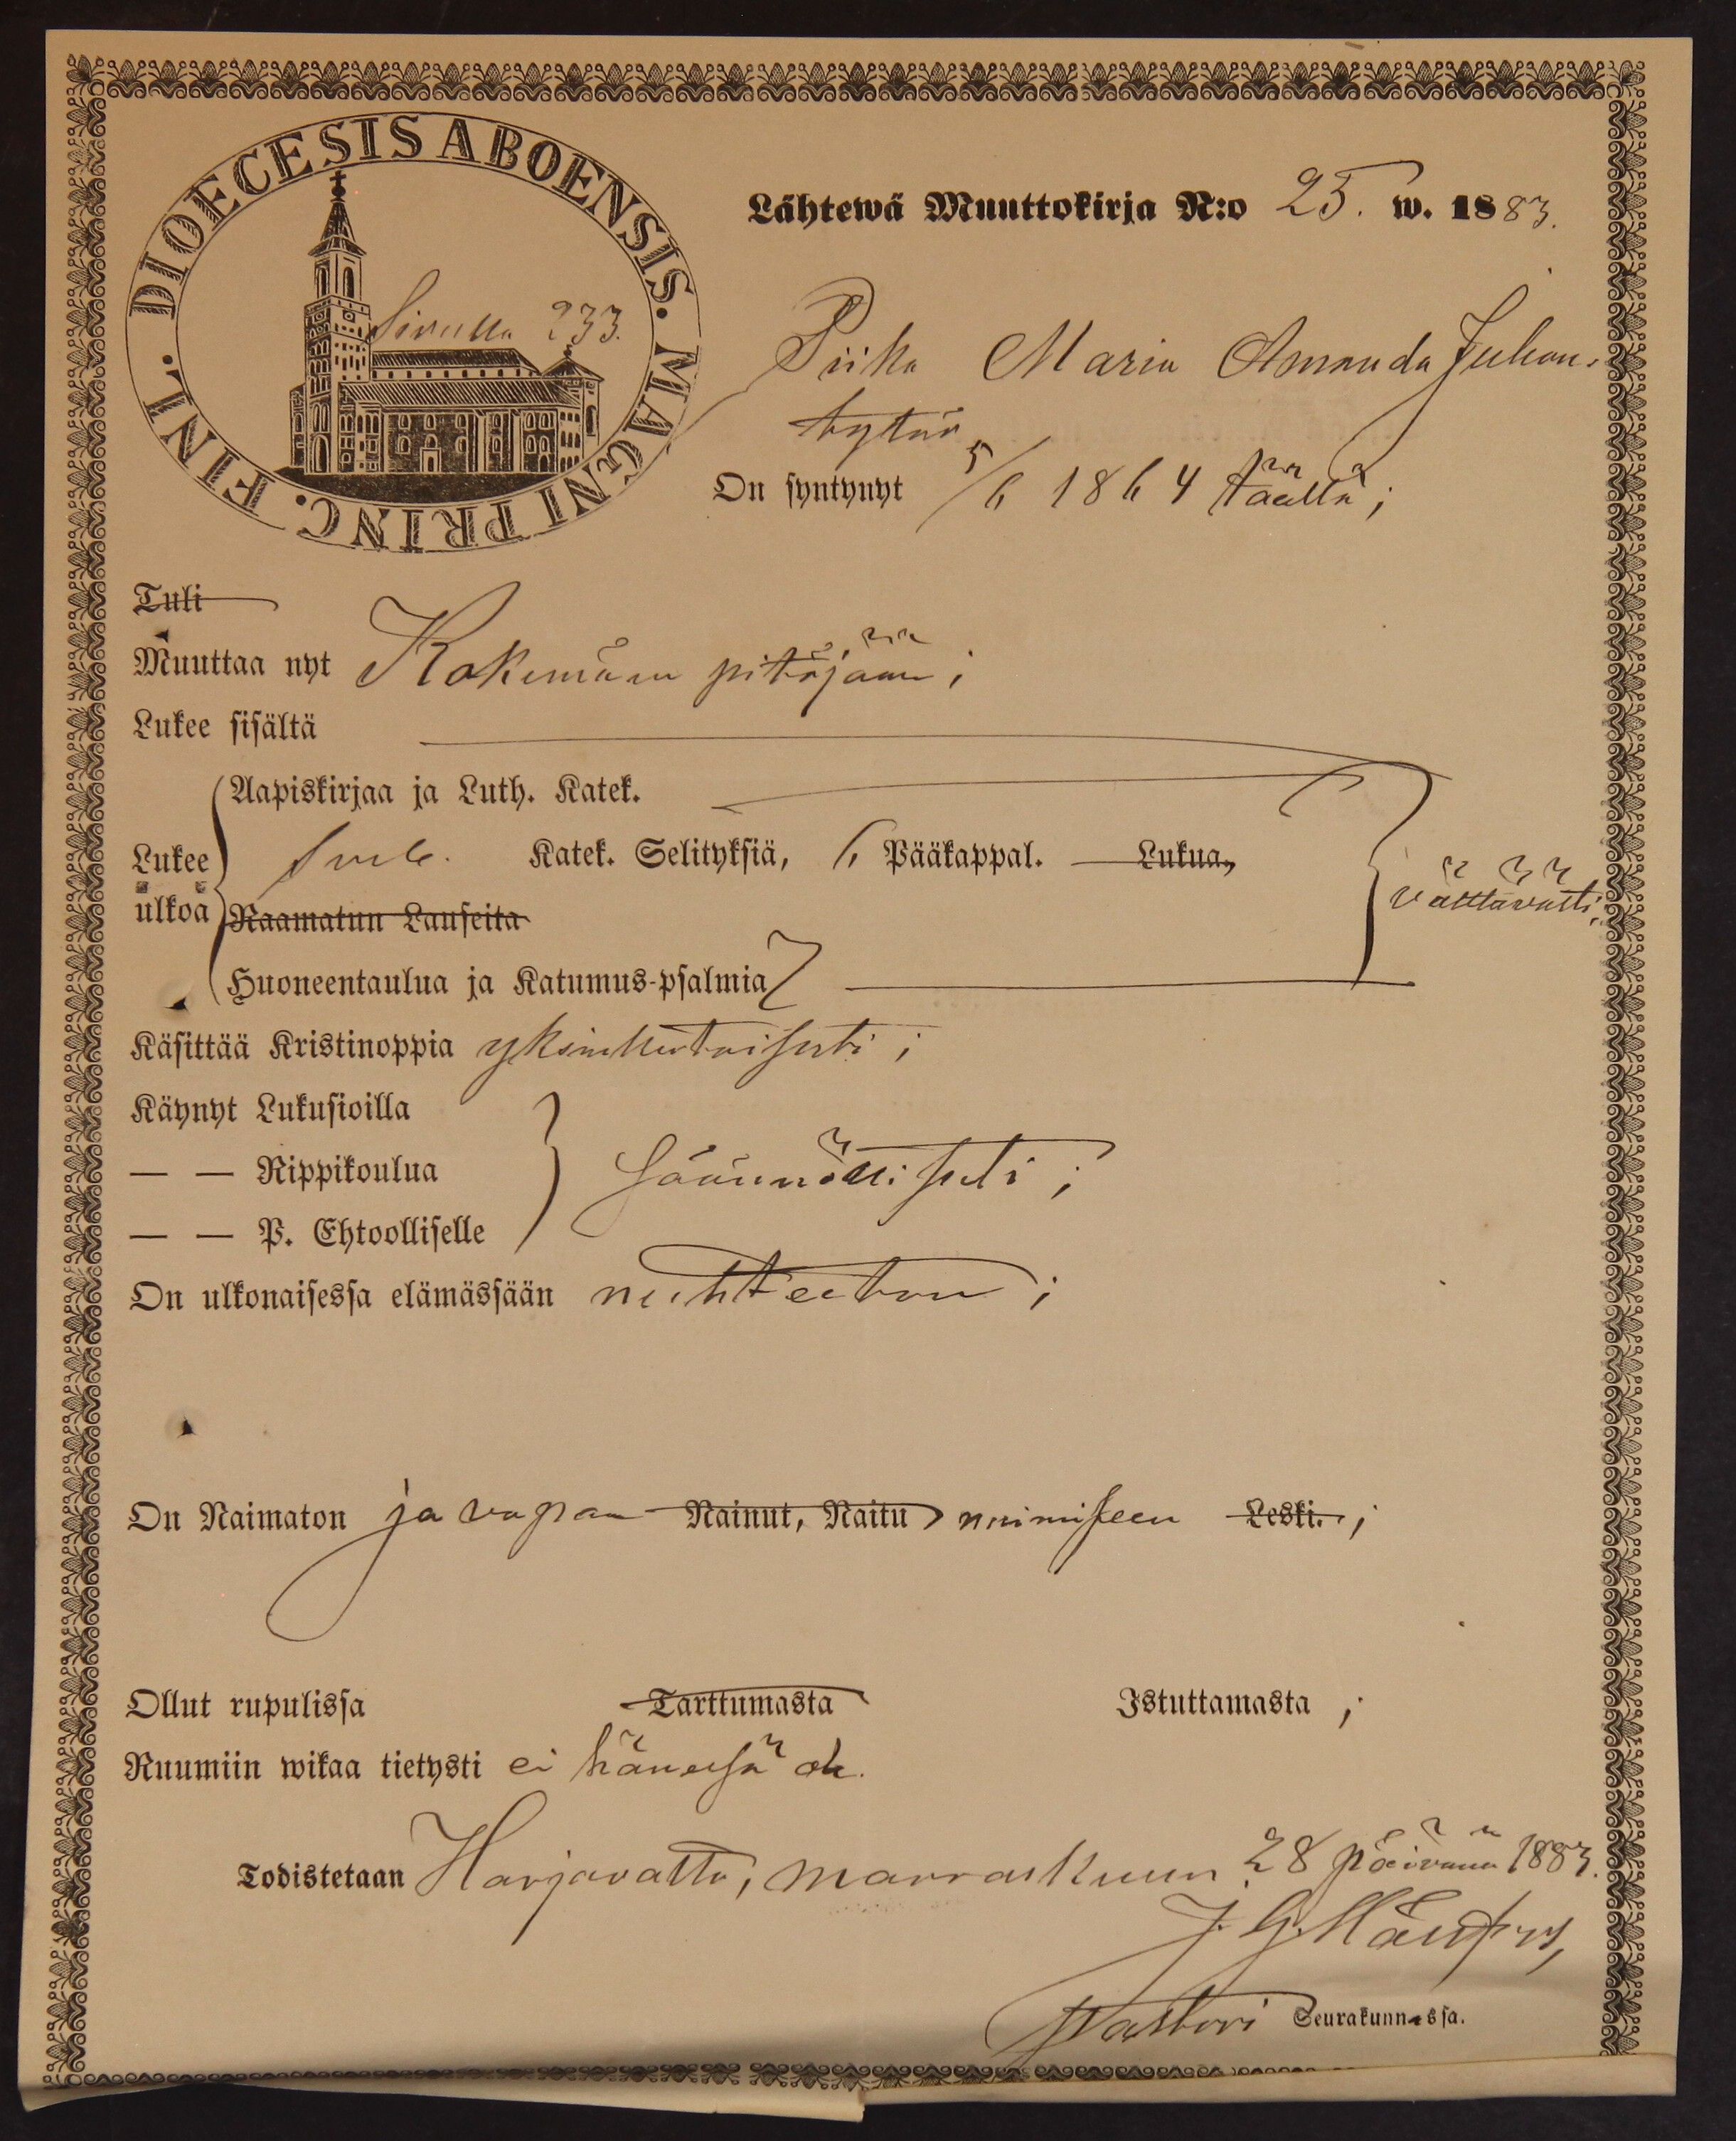 DIOECESIS ABOENSIS. MAGNI PRINC. FINL.
Sivulla 233.
Lähtewä Muuttokirja N:o 25. w. 1883.
Piika Maria Amanda Juhan-
tytär
On syntynyt 5/6 1864 täällä;
Tuli
Muuttaa nyt Kokemäen pitäjään;
Lukee sisältä
Aapiskirjaa ja Luth. Katek.
Lukee ülkoä
Katek. Selityksiä, 6 Pääkappal. Lukua,
välttävästi;
Raamatun Lauseita
Huoneentaulua ja Katumus-psalmia
Käsittää Kristinoppia yksinkertaisesti;
Käynyt Lukusioilla
— — Rippikoulua
säännöllisesti;
— — P. Ehtoolliselle
On ulkonaisessa elämässään nuhteeton;
On Naimaton ja vapaa Nainut, Naitu naimiseen Leski.;
Ollut rupulissa Tarttumasta Istuttamasta;
Ruumiin wikaa tietysti ei hänessä ole.
Todistetaan Harjavalta, marraskuun 28 päivänä 1883.
J. G.
Pastori Seurakunnassa.